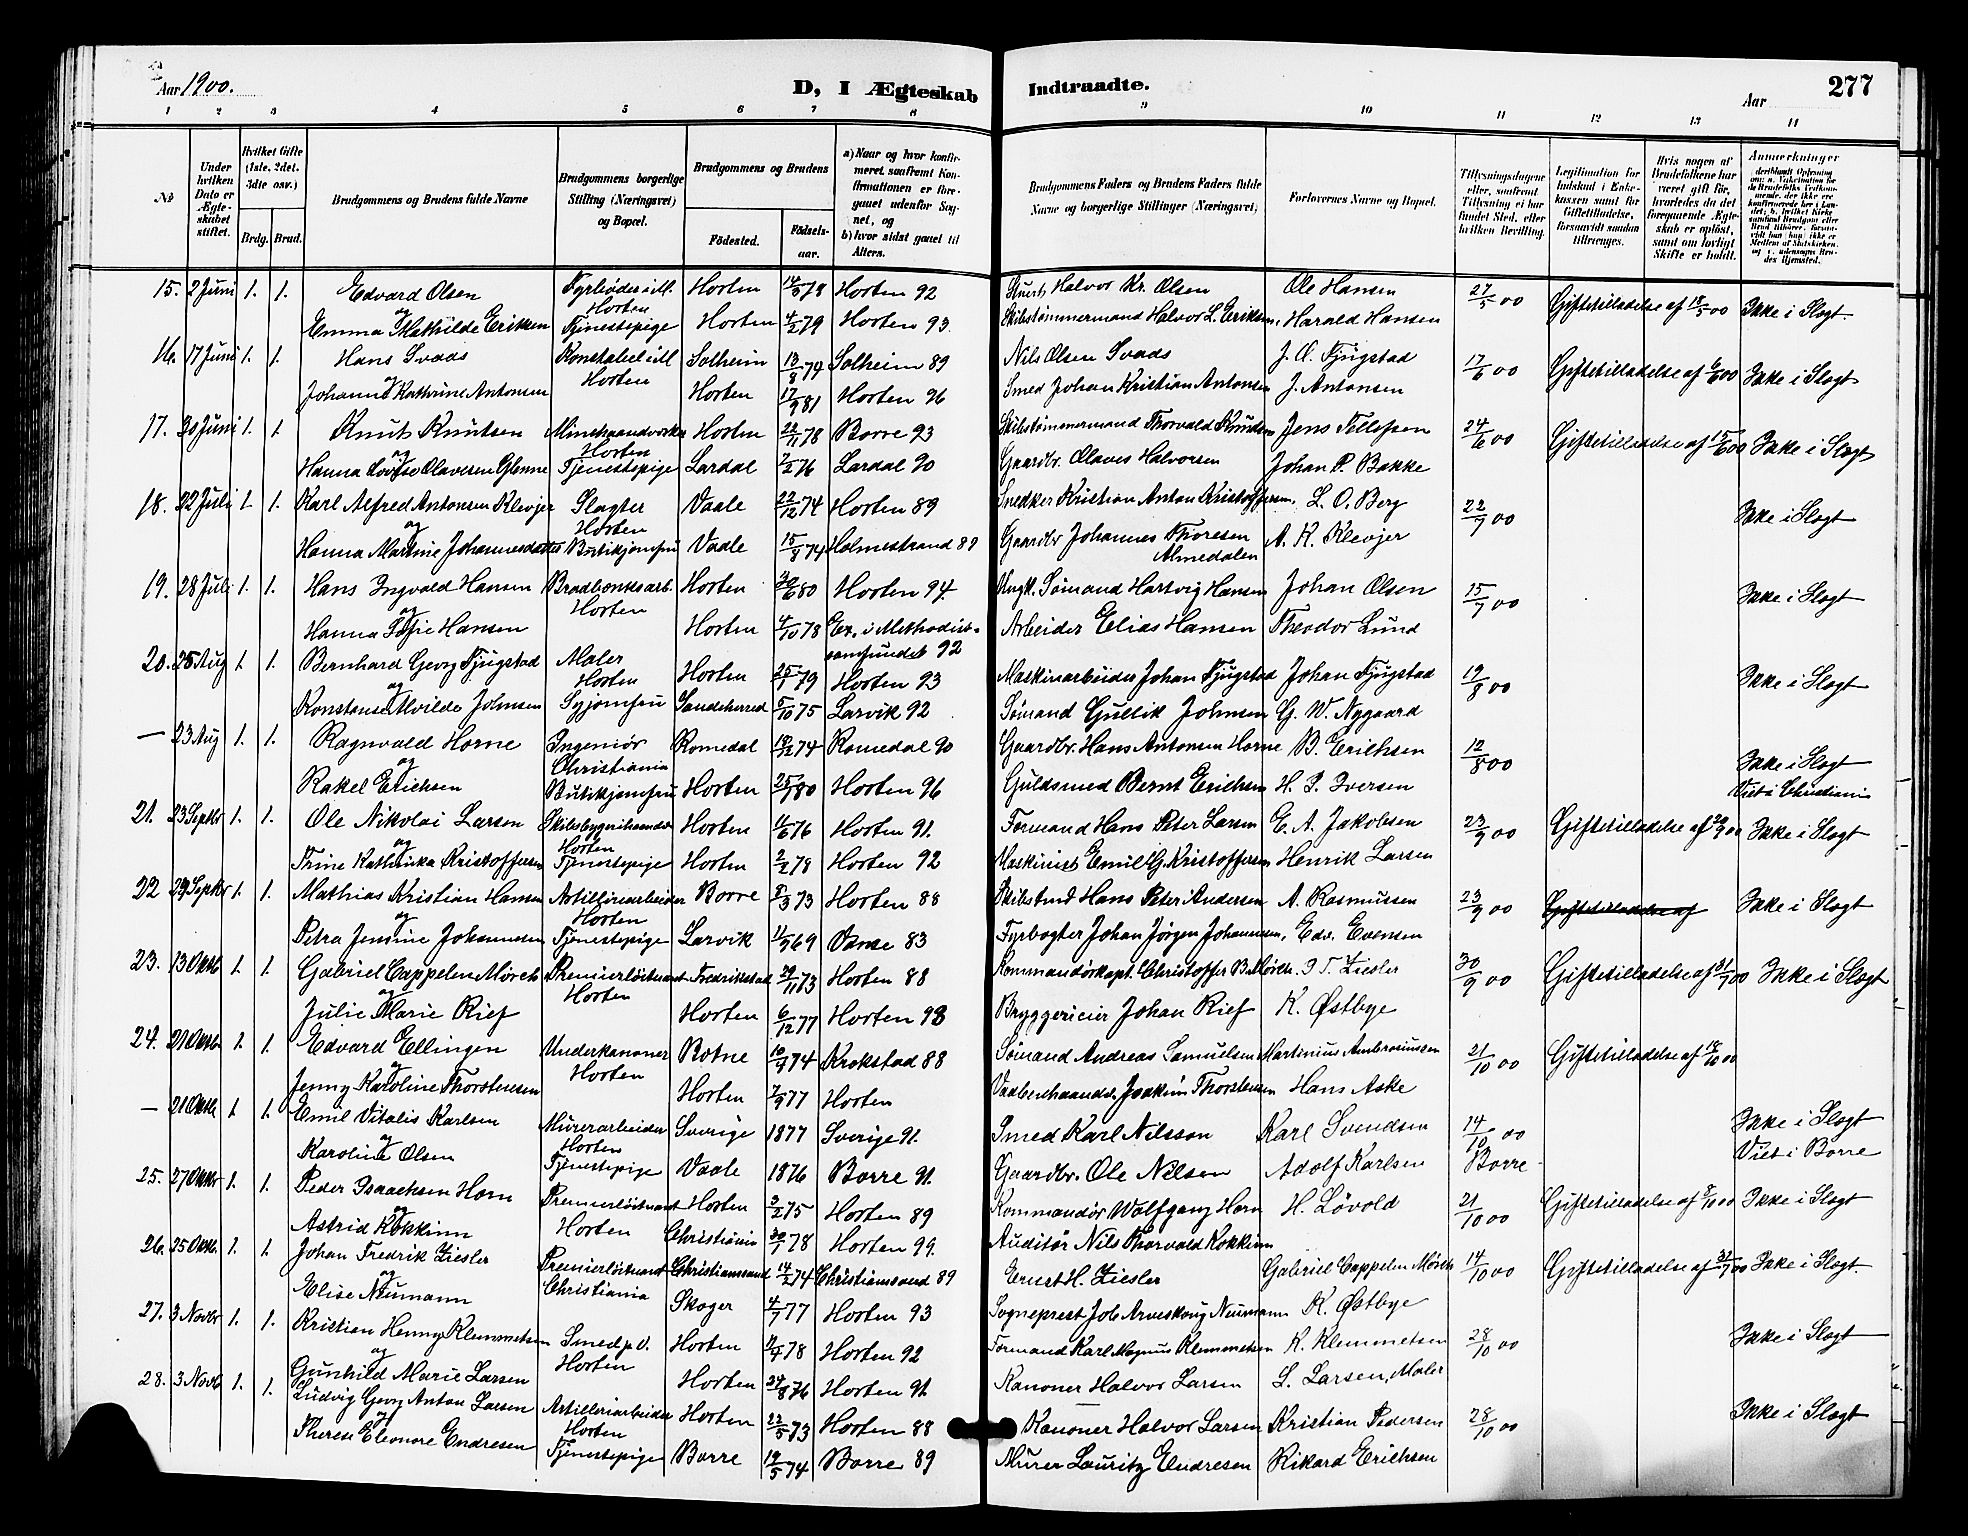 Aar 1900.
D, I Ægteskab
Indtraadte.
Aar
277
1 2 3 4 5 6 7 8 9 10 11 12 13 14
No
Under hvilken Dato er Ægteskabet stiftet.
Hvilket Gifte (1ste, 2det, 3die osv.)
Brdg. Brud.
Brudgommens og Brudens fulde Navne
Brudgommens borgerlige Stilling (Næringsvei) og Bopæl.
Brudgommens og Brudens
Fødested. Fødselsaar.
a) Naar og hvor konfirmeret samt med Konfirmationen er foregaaet udenfor Sognet, og
b) hvor sidst gaaet til Alters.
Brudgommens Faders og Brudens Faders fulde Navne og borgerlige Stillinger (Næringsvei)
Forlovernes Navne og Bopæl.
Tillysningsdagene eller, saafremt Tillysning ei har fundet Sted, efter hvilken Bevilling.
Legitimation for Indskud i Enkekassen samt for Giftetilladelse, forsaavidt saadan tiltrænges.
Hvis nogen af Brudefolkene har været gift før, hvorledes da det foregaaende Ægteskab er opløst, samt om lovligt Skifte er holdt.
Anmerkninger
15. 2 Juni 1. 1. Edvard Olsen Fyrbøder i ill. Horten Horten 14/5 78 Horten 92 Stuert Halvor Kr. Olsen Ole Hansen 27/5 00 Giftetilladelse af 18/5 00 Ikke i Slægt.
og Emma Mathilde Eriksen Tjenestepige Horten 4/2 79 Horten 93. Skibstømmermand Halvor L. Eriksen, Harald Hansen
16. 17 Juni 1. 1. Hans Svads Konstabel i ill Horten Solheim 13/8 74 Solheim 89 Nils Olsen Svads J. A. Fjugstad 17/6 00 Giftetilladelse af 6/6 00 Ikke i Slægt
og Johanne Kathrine Antonsen Horten 17/9 81 Horten 96 Smed Johan Kristian Antonsen J. Antonsen
17. 30 Juni 1. 1. Knut Knutsen Minehaandverker Horten Horten 22/11 78 Borre 93 Skibstømmermand Thorvald Knudsen Jens Tellefsen 24/6 00 Giftetilladelse af 15/6 00 Ikke i Slægt
og Hanna Lovise Olavesen Glenne Tjenestepige Lardal 7/2 76 Lardal 90 Gaardbr. Olaves Halvorsen Johan P. Bakke
18. 22 Juli 1. 1. Karl Alfred Antonsen Klevjer Slagter Horten Vaale 22/12 74 Horten 89 Snedker Kristian Anton Kristoffersen, L. O. Berg 22/7 00 Ikke i Slægt
og Hanna Martine Johannesdatter Butikjomfru Vaale 15/8 74 Holmestrand 89 Gaardbr Johannes Thoresen Almedalen A. K. Klevjer
19. 28 Juli 1. 1. Hans Ingvald Hansen Bradbænksarb. Horten Horten 30/6 80 Horten 94. Ungk. Sømand Hartvig Hansen Johan Olsen 15/7 00 Ikke i Slægt
og Hanna Sofie Hansen Horten 4/10 78 Ex. i Methodistsamfundet 92 Arbeider Elias Hansen Theodor Lund
20. 25 Aug 1. 1. Bernhard Georg Fjugstad Maler Horten Horten 25/1 79 Horten 93 Maskinarbeider Johan Fjugstad Johan Fjugstad 19/8 00 Ikke i Slægt
og Konstanse Alvilde Johnsen Syjomfru Sandeherred 5/10 75 Larvik 92 Sømand Gullik Johnsen G. W. Nygaard
— 23 Aug 1. 1. Ragnvald Horne Ingeniør Christiania Romedal 18/2 74 Romedal 90 Gaardbr. Hans Antonsen Horne B. Erichsen 12/8 00 Ikke i Slægt
og Rakel Erichsen Butikjomfru Horten 25/7 80 Horten 96 Guldsmed Bernt Erichsen H. P. Iversen Viet i Christiania
21. 23 Septbr 1. 1. Ole Nikolai Larsen Skibsbyggerihaandv Horten Horten 11/6 76 Horten 91. Formand Hans Peter Larsen E. A. Jakobsen 23/9 00 Giftetilladelse af 20/9 00 Ikke i Slægt
og Trine Kathinka Kristoffersen Tjenestepige Horten 2/2 78 Horten 92 Maskinist Emil G. Kristoffersen Henrik Larsen
22 29 Septbr 1. 1. Mathias Kristian Hansen Artilleriarbeider Horten Borre 8/3 73 Horten 88 Skibstmd Hans Peter Andersen A. Rasmussen 23/9 00 Giftetilladelse af Ikke i Slægt
og Petra Jensine Johannesen Tjenestepige Larvik 11/9 69 Vanse 83 Fyrbøgter Johan Jørgen Johannesen, Edv. Evensen
23. 13 Oktb 1. 1. Gabriel Cappelen Mørch Premierløitnant Horten Fredrikstad 29/11 73 Horten 88 Kommandørkapt. Christoffer B. Mørch. J. F. Ziesler 30/9 00 Giftetilladelse af 31/7 00 Ikke i Slægt
og Julie Marie Rief Horten 6/12 77 Horten 93 Bryggerieier Johan Rief K. Østbye
24. 21 Oktb. 1. 1. Edvard Ellingen Underkanoner Horten Botne 10/9 74 Krokstad 88 Sømand Andreas Samuelsen Martinius Ambrosiussen 21/10 00 Giftetilladelse af 18/10 00
og Jenny Karoline Thorstensen Horten 7/9 77 Horten Vaabenhaandv. Joakim Thorstensen Hans Aske
— 21 Oktb 1. 1. Emil Vitalis Karlsen Murerarbeider Horten Sverige 1877 Sverige 91. Smed Karl Nilsson Karl Svendsen 14/10 00 Ikke i Slægt
og Karoline Olsen Tjenestepige Vaale 1876 Borre 91. Gaardbr. Ole Nilsen Adolf Karlsen Borre Viet i Borre
25. 27 Oktbr 1. 1. Peder Isaachsen Horn Premierløitnant Horten Horten 3/2 75 Horten 89 Kommandør Wolfgang Horn H. Løvold 21/10 00 Giftetilladelse af 8/10 00 Ikke i Slægt
og Astrid Kokkinn Christiania 30/1 78 Horten 99. Auditør Nils Thorvald Kokkinn
26. 25 Oktb. 1. 1. Johan Fredrik Ziesler Premierløitnant Christiania Christianssand 14/2 74 Christianssand 89 Ernst H. Ziesler Gabriel Cappelen Mørch 14/10 00 Giftetilladelse af 31/7 00 Ikke i Slægt.
og Elise Neumann Skoger 4/7 77 Horten 93 Sogneprest Job Arneskoug Neumann K. Østbye
27. 3 Novbr 1. 1. Kristian Henny Klemmetsen Smed p. V. Horten Horten 11/4 78 Horten 92 Formand Karl Magnus Klemmetsen K. Klemmetsen 28/10 00 Ikke i Slægt
og Gunhild Marie Larsen Horten 24/8 76 Horten 91. Kanoner Halvor Larsen L. Larsen, Maler
28. 3 Novb 1. 1. Ludvig Georg Anton Larsen Artilleriarbeider Horten Horten 22/5 73 Horten 88 Kanoner Halvor Larsen Kristian Pedersen 28/10 00 Ikke i Slægt
og Therese Eleonore Endresen Tjenestepige Borre 19/5 74 Borre 89 Murer Lauritz Endresen Rikard Erichsen